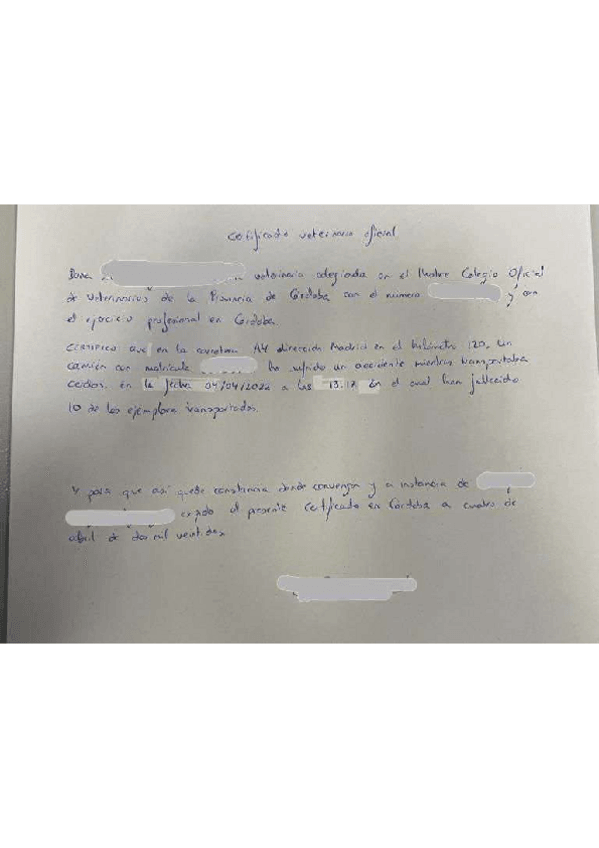 Certificado veterinario oficial
Dona veterinaria colegiada en el Ilustre Colegio Oficial
de Veterinarios de la Provincia de Córdoba con el número y con
el ejercicio profesional en Córdoba.
CERTIFICO que en la carretera A4 dirección Madrid en el kilómetro 120, un
camión con matrícula ha sufrido un accidente mientras transportaba
cerdos, en la fecha 04/04/2022 a las 13:17 en el cual han fallecido
10 de los ejemplares transportados.
Y para que así quede constancia donde convenga y a instancia de
expido el presente certificado en Córdoba a cuatro de
abril de dos mil veintidos.